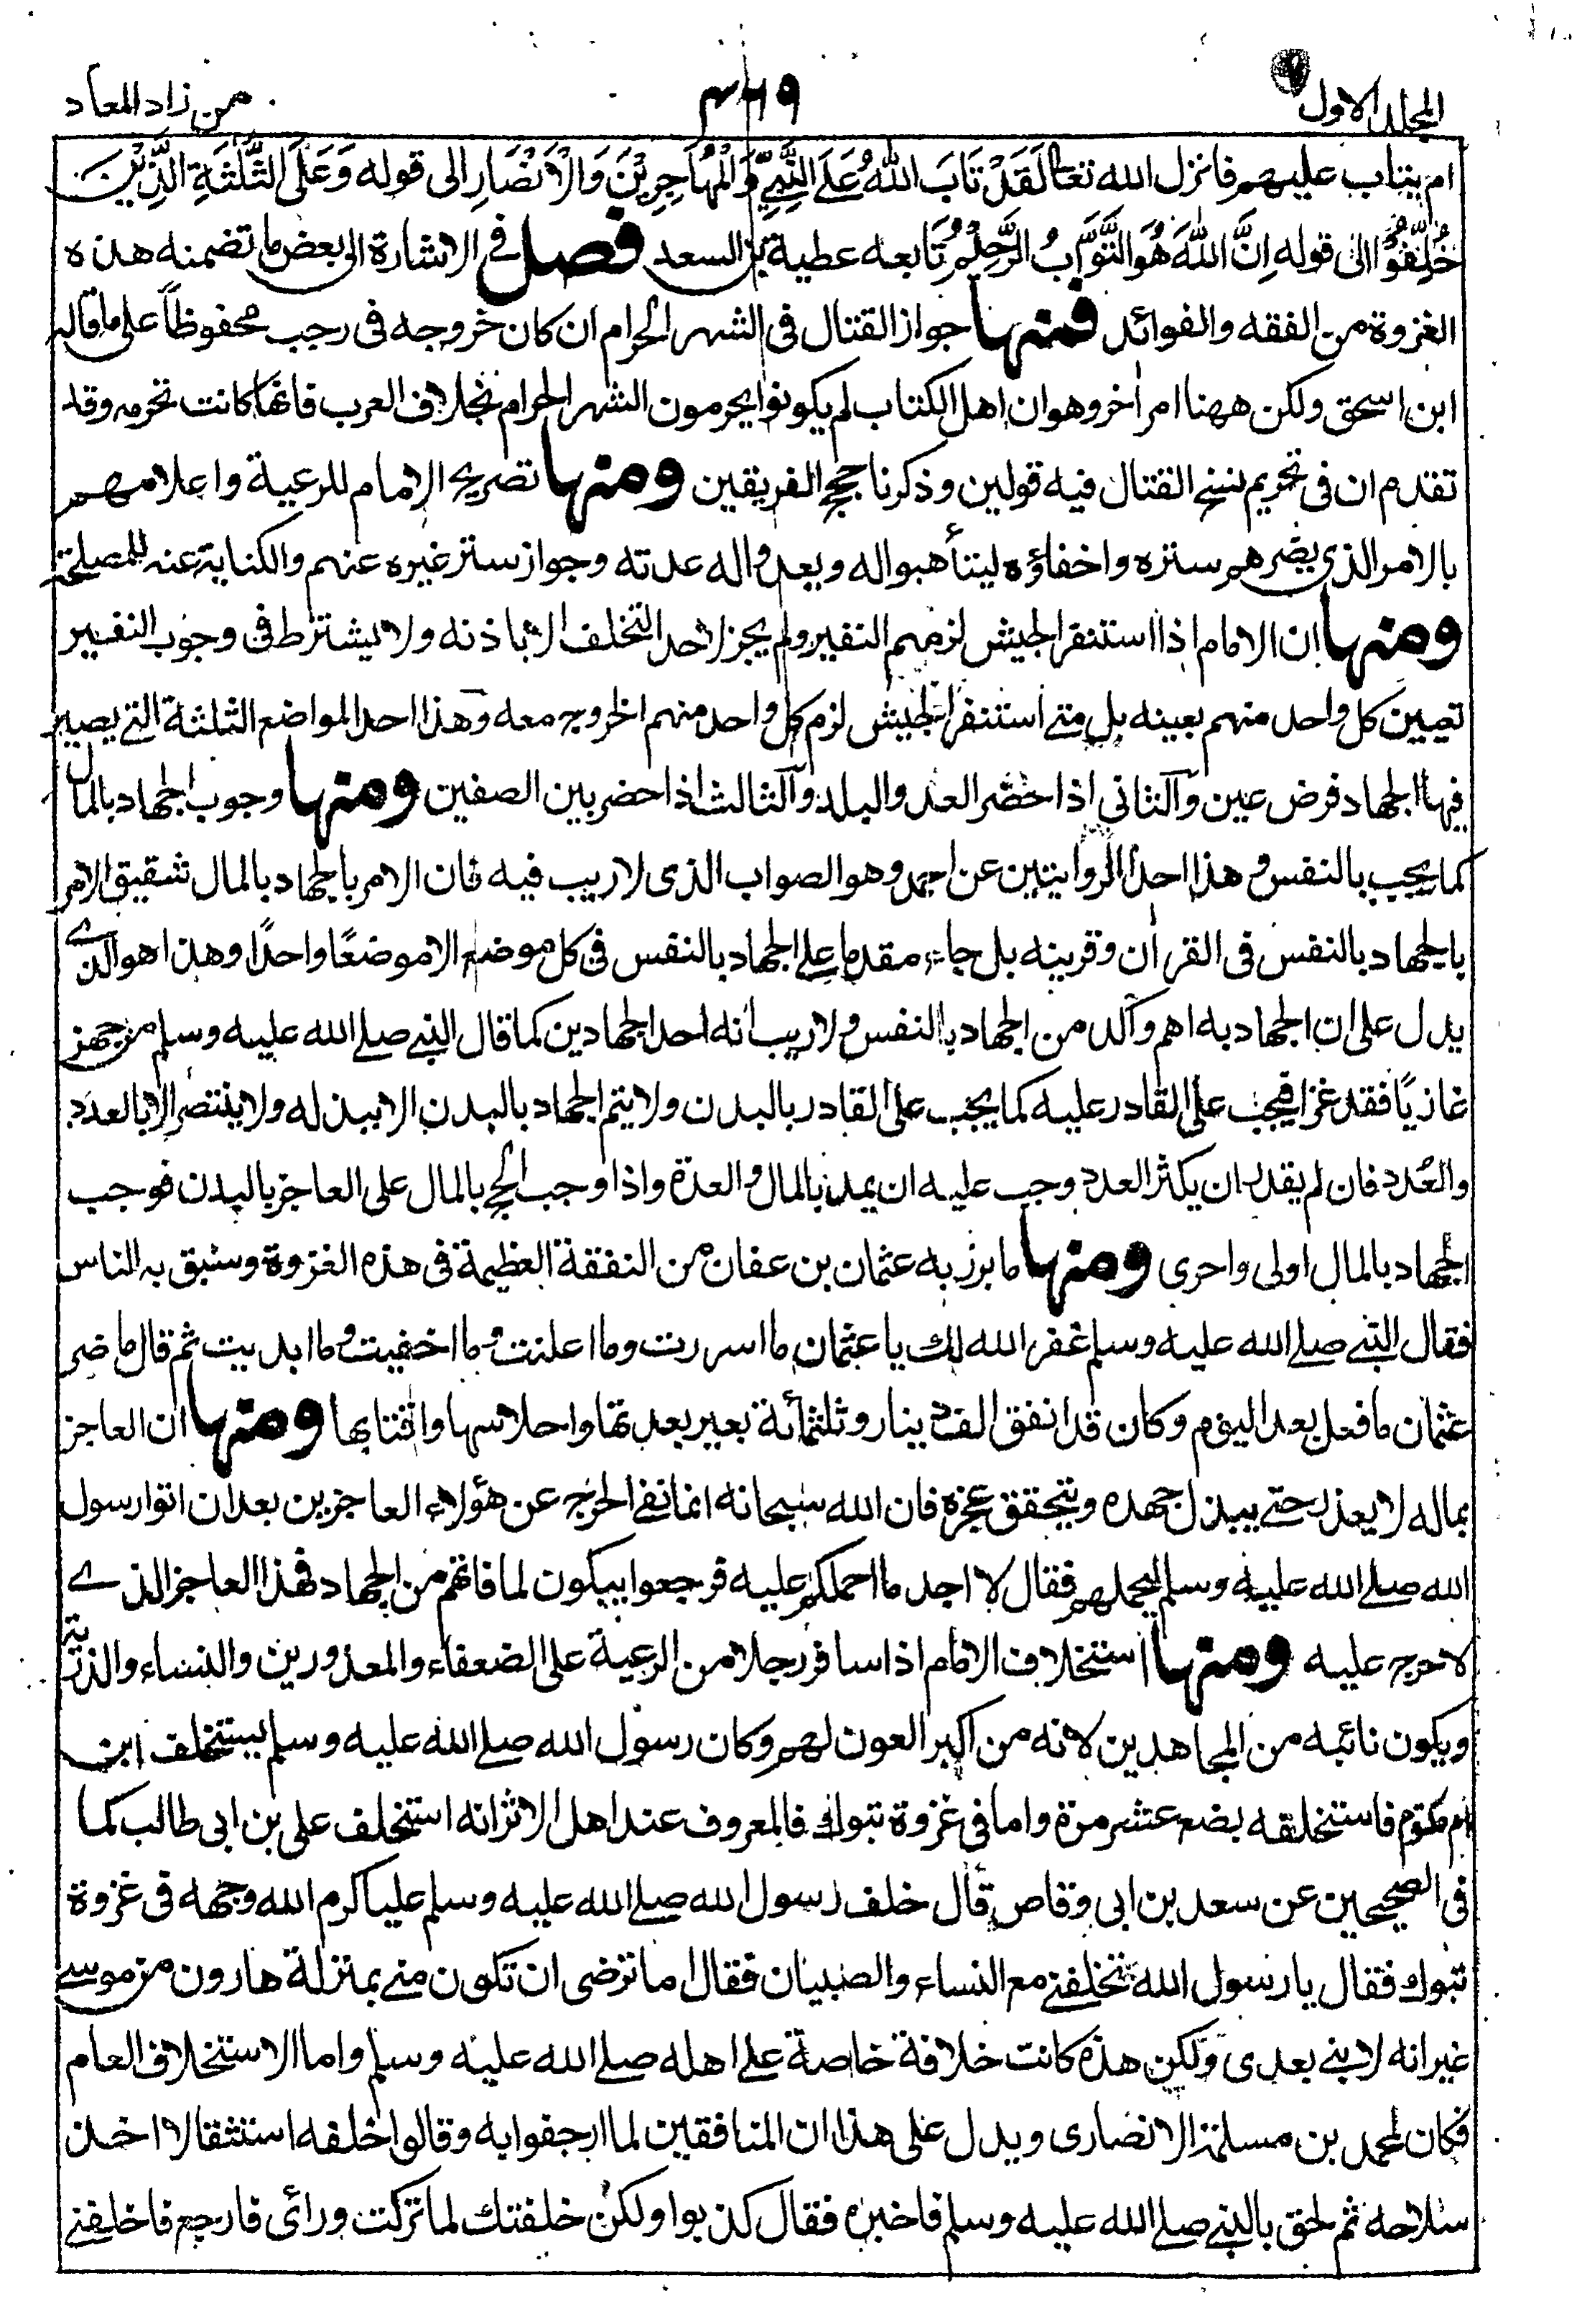 المجلد الاول ٤٦٩ من زاد المعاد
ام يتاب عليهم فانزل الله تعالى لَقَدْ تَابَ اللهُ عَلَى النَّبِيِّ وَالْمُهَاجِرِيْنَ وَالْاَنْصَارِ الى قوله وَعَلَى الثَّلٰثَةِ الَّذِيْنَ
خُلِّفُوْا الى قوله اِنَّ اللهَ هُوَ التَّوَّابُ الرَّحِيْمُ تابعه عطية بن السعد فصل فى الاشارة الى بعض ما تضمنه هذه
الغزوة من الفقه والفوائد فمنها جواز القتال فى الشهر الحرام ان كان خروجه فى رجب محفوظاً على ما قاله
ابن اسحق ولكن ههنا امر اخر وهو ان اهل الكتاب لم يكونوا يحرمون الشهر الحرام بخلاف العرب فانها كانت تحرمه وقد
تقدم ان فى تحريم نسخ القتال فيه قولين وذكرنا حجج الفريقين ومنها تصريح الامام للرعية واعلامهم
بالامر الذى يضرهم ستره واخفاؤه ليتأهبوا له ويعدوا له عدته وجواز ستر غيره عنهم والكناية عنه للمصلحة
ومنها ان الامام اذا استنفر الجيش لزمهم النفير ولم يجز لاحد التخلف الا باذنه ولا يشترط فى وجوب النفير
تعيين كل واحد منهم بعينه بل متى استنفر الجيش لزم كل واحد منهم الخروج معه وهذا احد المواضع الثلثة التى يصير
فيها الجهاد فرض عين والثانى اذا حضر العدو البلد والثالث اذا حضر بين الصفين ومنها وجوب الجهاد بالمال
كما يجب بالنفس وهذا احد الروايتين عن احمد وهو الصواب الذى لا ريب فيه فان الامر بالجهاد بالمال شقيق الامر
بالجهاد بالنفس فى القرأن وقرينه بل جاء مقدما على الجهاد بالنفس فى كل موضع الا موضعًا واحدًا وهذا هو الذى
يدل على ان الجهاد به اهم وآكد من الجهاد بالنفس ولا ريب انه احد الجهادين كما قال النبى صلى الله عليه وسلم من جهز
غازيًا فقد غزا فيجب على القادر عليه كما يجب على القادر بالبدن ولا يتم الجهاد بالبدن الا ببذله ولا ينتصر الا بالعدد
والعُدد فان لم يقدر ان يكثر العدد وجب عليه ان يمد بالمال والعدة واذا وجب الحج بالمال على العاجز بالبدن فوجب
الجهاد بالمال اولى واحرى ومنها ما برز به عثمان بن عفان من النفقة العظيمة فى هذه الغزوة وسبق به الناس
فقال النبى صلى الله عليه وسلم غفر الله لك يا عثمان ما اسررت وما اعلنت وما اخفيت وما ابديت ثم قال ما ضر
عثمان ما فعل بعد اليوم وكان قد انفق الف دينار وثلثمائة بعير بعدتها واحلاسها واقتابها ومنها ان العاجز
بماله لا يعذر حتى يبذل جهده ويتحقق عجزه فان الله سبحانه انما نفى الحرج عن هؤلاء العاجزين بعد ان اتوا رسول
الله صلى الله عليه وسلم ليحملهم فقال لا اجد ما احملكم عليه فرجعوا يبكون لما فاتهم من الجهاد فهذا العاجز الذى
لا حرج عليه ومنها استخلاف الامام اذا سافر رجلا من الرعية على الضعفاء والمعذورين والنساء والذرية
ويكون نائبه من المجاهدين لانه من اكبر العون لهم وكان رسول الله صلى الله عليه وسلم يستخلف ابن
ام مكتوم فاستخلفه بضع عشر مرة واما فى غزوة تبوك فالمعروف عند اهل الاثر انه استخلف على بن ابى طالب كما
فى الصحيحين عن سعد بن ابى وقاص قال خلف رسول الله صلى الله عليه وسلم عليا كرم الله وجهه فى غزوة
تبوك فقال يا رسول الله تخلفنى مع النساء والصبيان فقال اما ترضى ان تكون منى بمنزلة هارون من موسى
غير انه لا نبى بعدى ولكن هذه كانت خلافة خاصة على اهله صلى الله عليه وسلم واما الاستخلاف العام
فكان لمحمد بن مسلمة الانصارى ويدل على هذا ان المنافقين لما ارجفوا به وقالوا خلفه استثقالا اخذ
سلاحه ثم لحق بالنبى صلى الله عليه وسلم فاخبره فقال كذبوا ولكن خلفتك لما تركت ورائى فارجع فاخلفنى